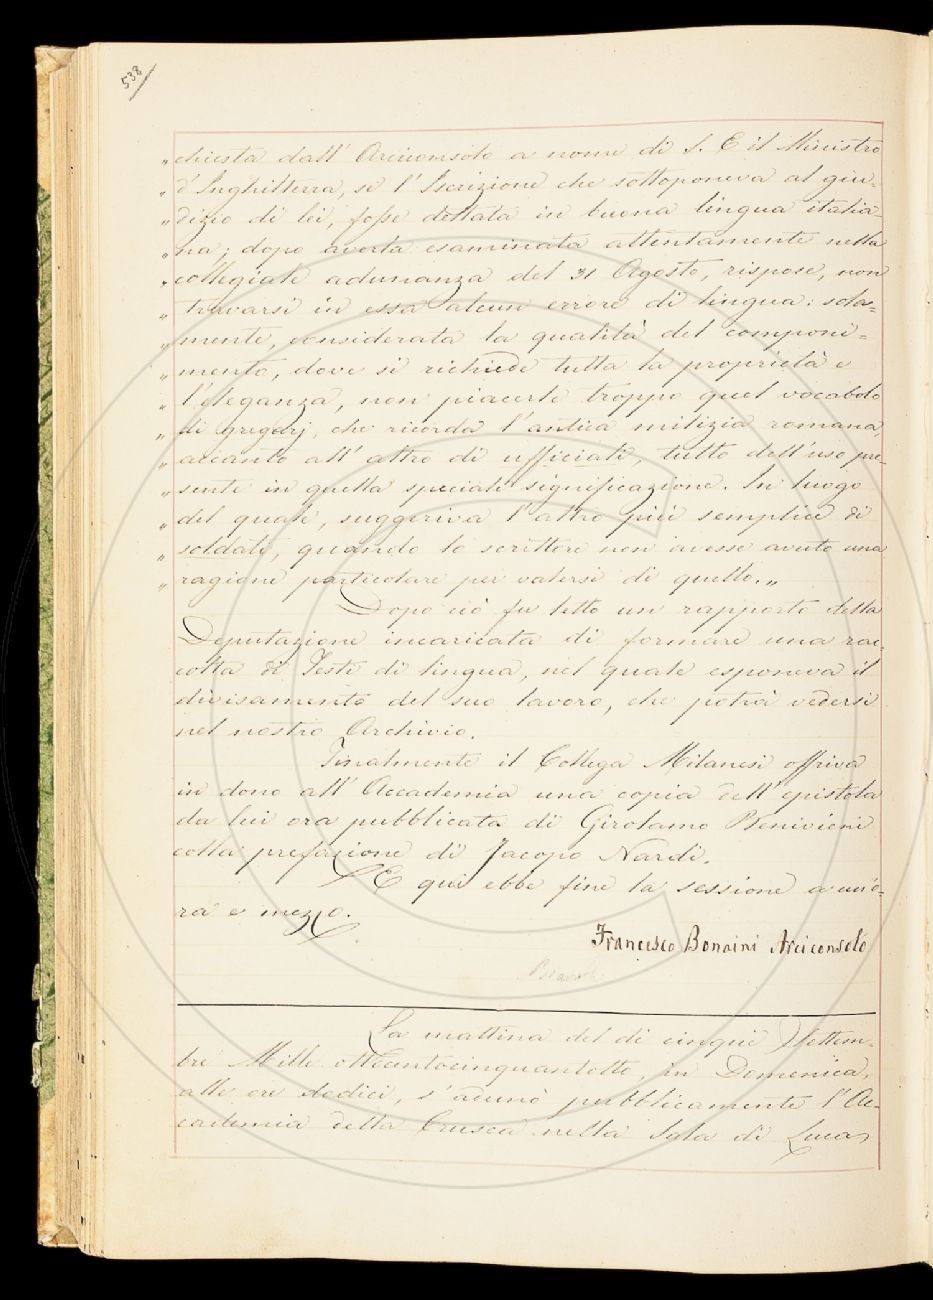 538
„ chiesta dall' Arciconsolo a nome di S. E il Ministro
„ d'Inghilterra, se l'Iscrizione che sottoponeva al giu-
„ dizio di lei, fosse dettata in buona lingua italia-
„ na; dopo averla esaminata attentamente nella
„ collegiale adunanza del 31 Agosto, rispose, non
„ trovarsi in essa alcun errore di lingua: sola-
„ mente, considerata la qualità del componi-
„ mento, dove si richiede tutta la proprietà e
„ l'eleganza, non piacerle troppo quel vocabolo
„ di gregarj, che ricorda l'antica milizia romana,
„ accanto all' altro di ufficiali, tutto dell'uso pre-
„ sente in quella speciale significazione. In luogo
„ del quale, suggeriva l'altro più semplice di
„ soldati, quando lo scrittore non avesse avuto una
„ ragione particolare per valersi di quello. „
Dopo ciò fu letto un rapporto della
Deputazione incaricata di formare una rac-
colta di Testi di lingua, nel quale esponeva il
divisamento del suo lavoro, che potrà vedersi
nel nostro Archivio.
Finalmente il Collega Milanesi offriva
in dono all' Accademia una copia dell' epistola
da lui ora pubblicata di Girolamo Benivieni
colla prefazione di Jacopo Nardi.
E qui ebbe fine la sessione a un'o-
ra e mezzo.
Francesco Bonaini Arciconsolo
La mattina del dì cinque Settem-
bre Mille ottocentocinquantotto, in Domenica,
alle ore dodici, s'adunò pubblicamente l'Ac-
cademia della Crusca nella Sala di Luca